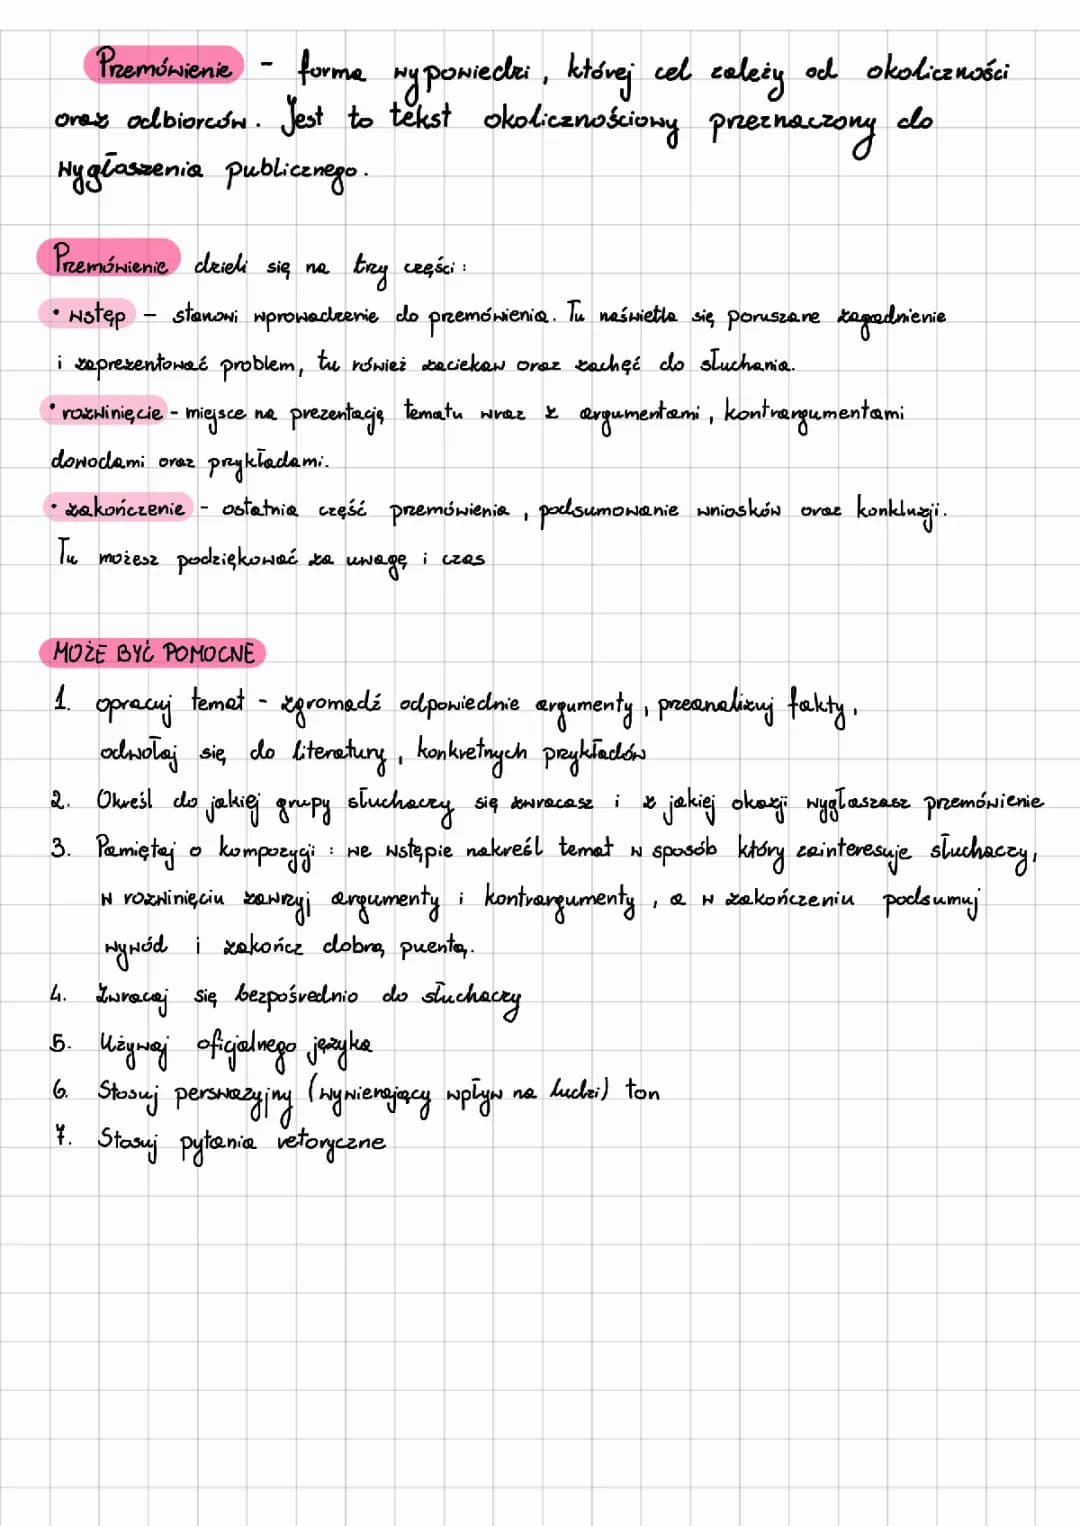 Przemówienie - forma wypowiedzi, której cel zależy od okoliczności
oraz odbiorców. Jest to tekst okolicznościowy przeznaczony do
wygłaszenia publicznego.
Przemówienie dzieli się na trzy części:
• wstęp - stanowi wprowadzenie do przemówienia. Tu naświetla się poruszane zagadnienie
i zaprezentować problem, tu rówież zaciekaw oraz zachęć do słuchania.
• rozwinięcie - miejsce na prezentację tematu wraz z argumentami, kontrargumentami
dowodami oraz przykładami.
• zakończenie - ostatnia część przemówienia, podsumowanie wniosków oraz konkluzji.
Tu możesz podziękować za uwagę i czas
MOŻE BYĆ POMOCNE
1. opracuj temat - zgromadź odpowiednie argumenty, przeanalizuj fakty,
odwołaj się do literatury, konkretnych przykładów
2. Określ do jakiej grupy słuchaczy się zwracasz i z jakiej okazji wygłaszasz przemówienie
3. Pamiętaj o kompozycji: we wstępie nakreśl temat w sposób który zainteresuje słuchaczy,
w rozwinięciu zawrzyj argumenty i kontrargumenty, a w zakończeniu podsumuj
wywód i zakończ dobrą puentą.
4. Zwracaj się bezpośrednio do słuchaczy
5. Używaj oficjalnego języka
6. Stosuj perswazyjny (wywierający wpływ na ludzi) ton
7. Stosuj pytania retoryczne